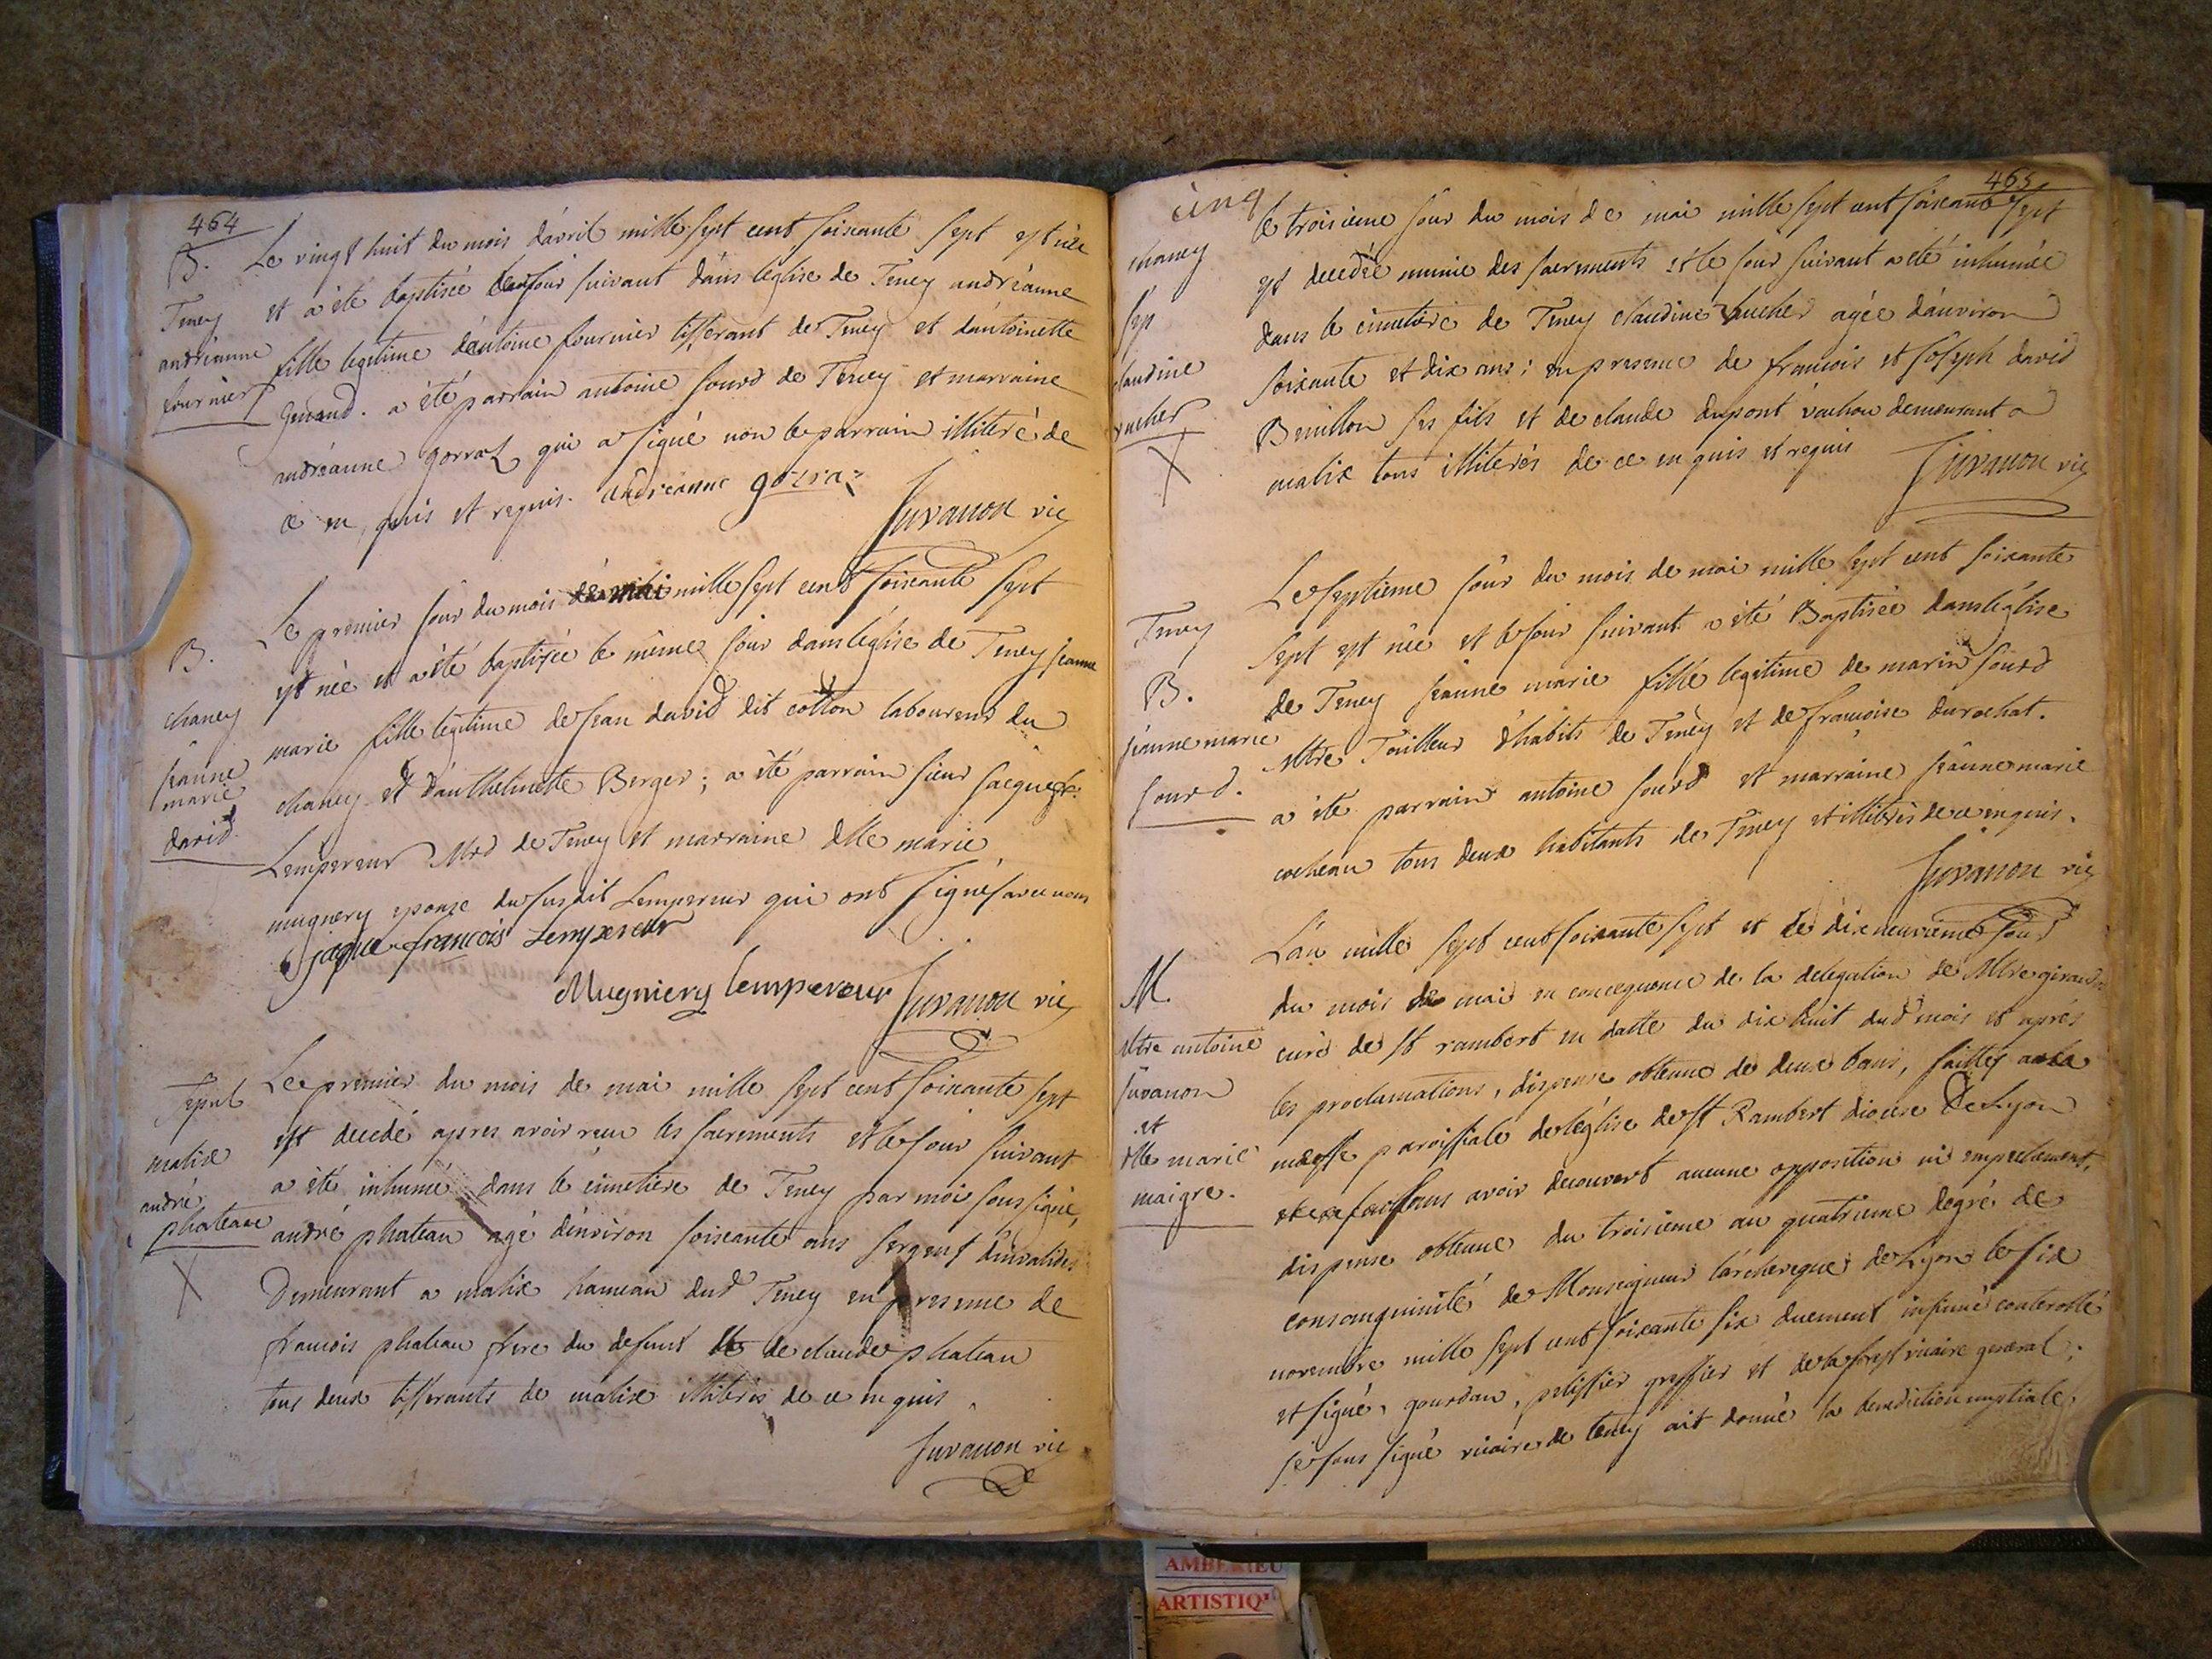 464
B.
Teney
andréanne
fournier
Le vingt huit du mois d'avril mille sept cent soixante sept est née
et a été baptisée le jour suivant dans l'église de Teney andréanne
fille legitime d'antoine fournier tisserant de Teney et d'antoinette
a été parrain antoine Sourd de Teney et marraine
andréanne gorraz qui a signé non le parrain illiteré de
ce enquis et requis. andréanne gorraz
Juvanon vic
B.
chaney
jeanne
marie
david
Le premier jour du mois de mai mille sept cent soixante sept
est née et a été baptisée le même jour dans l'église de Teney jeanne
marie fille legitime de jean david dit cotton laboureur du
chaney et d'anthelmette Berger; a été parrain sieur jacque fr.
Lempereur Mrd de Teney et marraine dlle marie
mugnery epouse du susdit Lempereur qui ont signés avec nous
jaque francois Lempereur
Mugniery lempereur Juvanon vic
Sepul
malix
andré
phateau
X
Le premier du mois de mai mille sept cent soixante sept
est decedé apres avoir reçu les sacrements et le jour suivant
a été inhumé dans le cimetiere de Teney par moi soussigné,
andré phateau agé d'environ soixante ans sergent d'invalides
Demeurant a malix hameau dud Teney en presence de
francois phateau frere du defunt et de claude phateau
tous deux tisserants de malix illiterés de ce enquis.
Juvanon vic
cinq
465
chaney
Sep
claudine
vucher
X
le troisieme jour du mois de mai mille sept cent soixante sept
est decedée munie des sacrements et le jour suivant a été inhumée
dans le cimetiere de Teney claudine vucher agée d'environ
soixante et dix ans; en presence de francois et joseph david
ses fils et de claude dupont vachou demeurant a
malix tous illiterés de ce enquis et requis
Juvanon vic
Teney
B.
jeanne marie
sourd.
Le septieme jour du mois de mai mille sept cent soixante
sept est née et le jour suivant a été Baptisée dans l'église
de Teney jeanne marie fille legitime de marin sourd
Mtre Tailleur d'habits de Teney et de francoise durochat.
a été parrain antoine sourd et marraine jeanne marie
cocheau tous deux habitants de Teney et illiterés de ce enquis.
Juvanon vic
M.
Mtre antoine
juvanon
et
dlle marie
maigre.
L'an mille sept cent soixante sept et le dix neuvieme jour
du mois de mai en consequence de la delegation de Mtre giraud
curé de st rambert en datte du dix huit dud mois et après
les proclamations, dispense obtenue de deux bans, faittes a la
messe paroissiale de l'église de st Rambert diocese de Lyon
sans avoir decouvert aucune opposition ni empechement,
dispense obtenue du troisieme au quatrieme degré de
consanguinité de Monseigneur l'archeveque de Lyon le six
novembre mille sept cent soixante six duement insinué controllé
et signé, gourdan, pelissier greffier et de la forest vicaire general;
je soussigné vicaire de teney ait donné la benediction nuptiale
AMBERIEU
ARTISTIQ